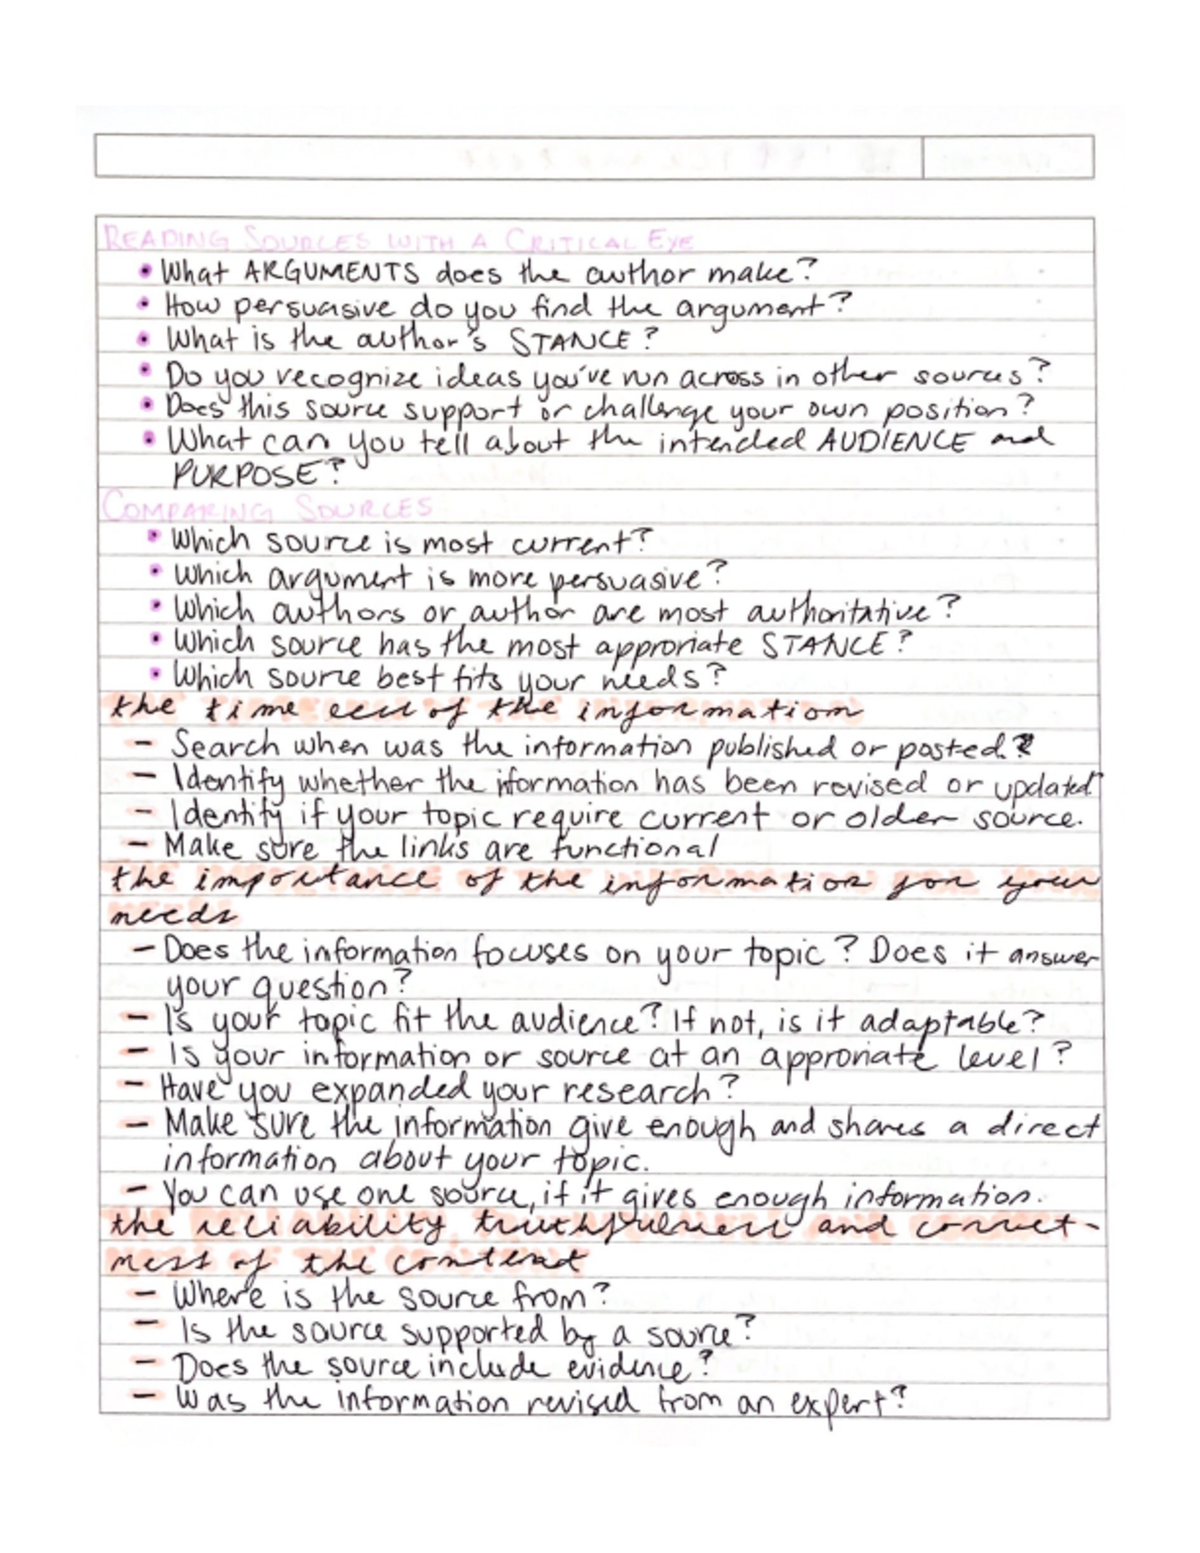 READING SOURCES WITH A CRITICAL EYE
• What ARGUMENTS does the author make?
• How persuasive do you find the argument?
• What is the author's STANCE?
• Do you recognize ideas you've run across in other sources?
• Does this source support or challenge your own position?
• What can you tell about the intended AUDIENCE and
PURPOSE?
COMPARING SOURCES
• Which source is most current?
• Which argument is more persuasive?
• Which authors or author are most authoritative?
• Which source has the most approriate STANCE?
• Which source best fits your needs?
the time of the information
– Search when was the information published or posted.
– Identify whether the iformation has been revised or updated
– Identify if your topic require current or older source.
– Make sure the links are functional
the importance of the information for your
needs
– Does the information focuses on your topic? Does it answer
your question?
– Is your topic fit the audience? If not, is it adaptable?
– Is your information or source at an approriate level?
– Have you expanded your research?
– Make sure the information give enough and shares a direct
information about your topic.
– You can use one source, if it gives enough information.
the reliability, truthfulness and correct-
ness of the content
– Where is the source from?
– Is the source supported by a source?
– Does the source include evidence?
– Was the information revised from an expert?